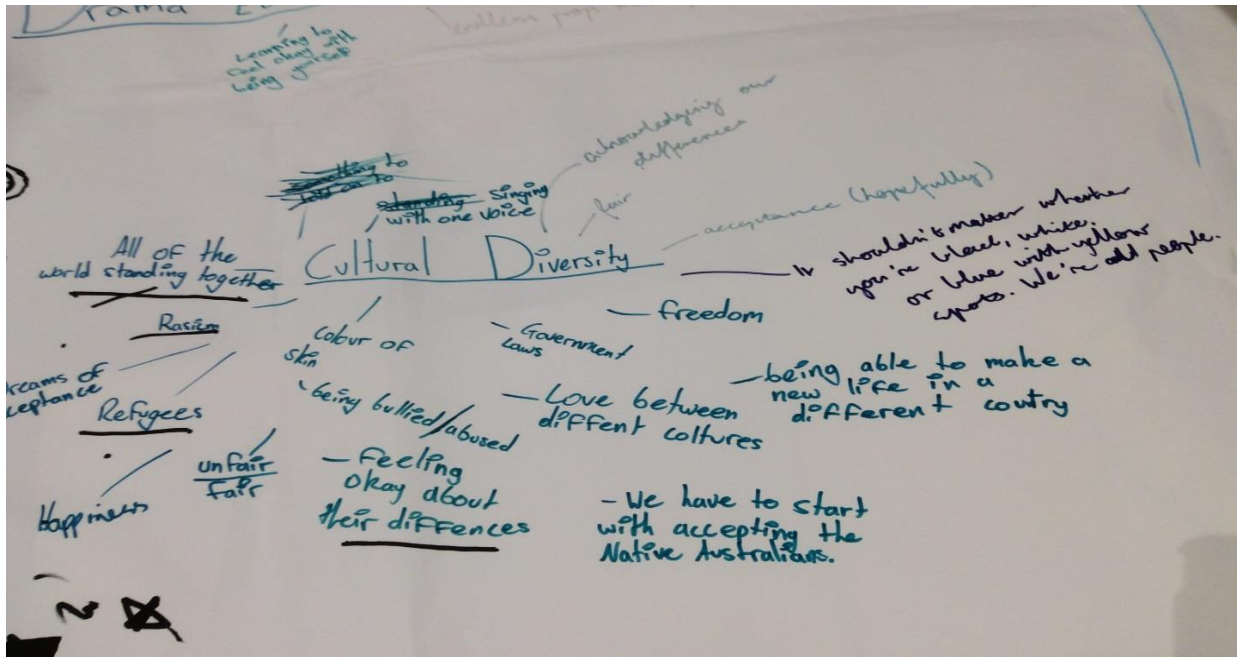 Drama
Learning to
feel okay with
being yourself
acknowledging our
differences
something to
hold on to
standing singing
with one voice
fair
acceptance (hopefully)
All of the
world standing together
Cultural Diversity
It shouldn't matter whether
you're black, white,
or blue with yellow
spots. We're all people.
Rasicm
colour of
skin
- Government
Laws
- freedom
Refugees
- being bullied/abused
- Love between
diffent coltures
- being able to make a
new life in a
different coutry
unfair
fair
- Feeling
okay about
their diffences
Happiness
- We have to start
with accepting the
Native Australians.